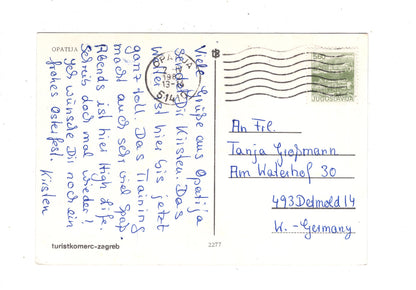 OPATIJA
Viele Grüße aus Opatija
sendet Dir Kirsten. Das
Wetter ist hier bis jetzt
ganz toll. Das Training
macht auch sehr viel Spaß.
Abends ist hier High Life.
Schreib doch mal wieder!
Ich wünsche Dir noch ein
frohes Osterfest. Kirsten
turistkomerc-zagreb
2277
OPATIJA
13-
51410
500
JUGOSLAVIJA
An Frl.
Tanja Großmann
Am Waterhof 30
493 Detmold 14
W.-Germany